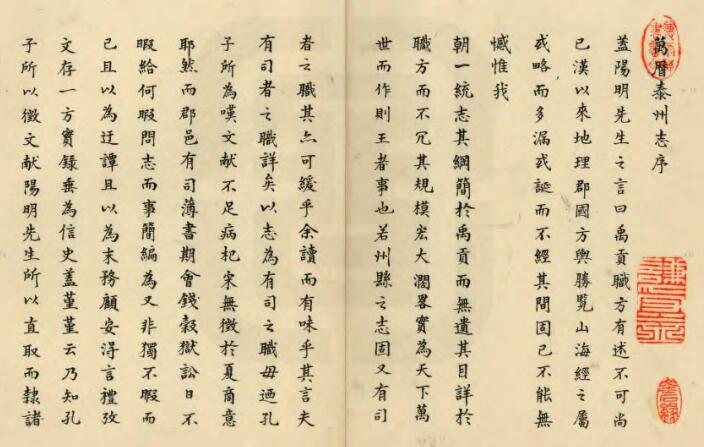 萬曆泰州志序
蓋陽明先生之言曰禹貢職方有述不可尚
已漢以來地理郡國方輿勝覽山海經之屬
或略而多漏或誕而不經其間固已不能無
憾惟我
朝一統志其綱簡於禹貢而無遺其目詳於
職方而不冗其規模宏大濶畧實為天下萬
世而作則王者事也若州縣之志固又有司
者之職其亦可緩乎余讀而有味乎其言夫
有司者之職詳矣以志為有司之職毋迺孔
子所為嘆文献不足病杞宋無徴於夏商意
耶然而郡邑有司薄書期會錢穀獄訟日不
暇給何暇問志而事簡編為又非獨不暇而
已且以為迂譚且以為末務顧安淂言禮攷
文存一方實録垂為信史蓋堇堇云乃知孔
子所以徴文献陽明先生所以直取而隸諸